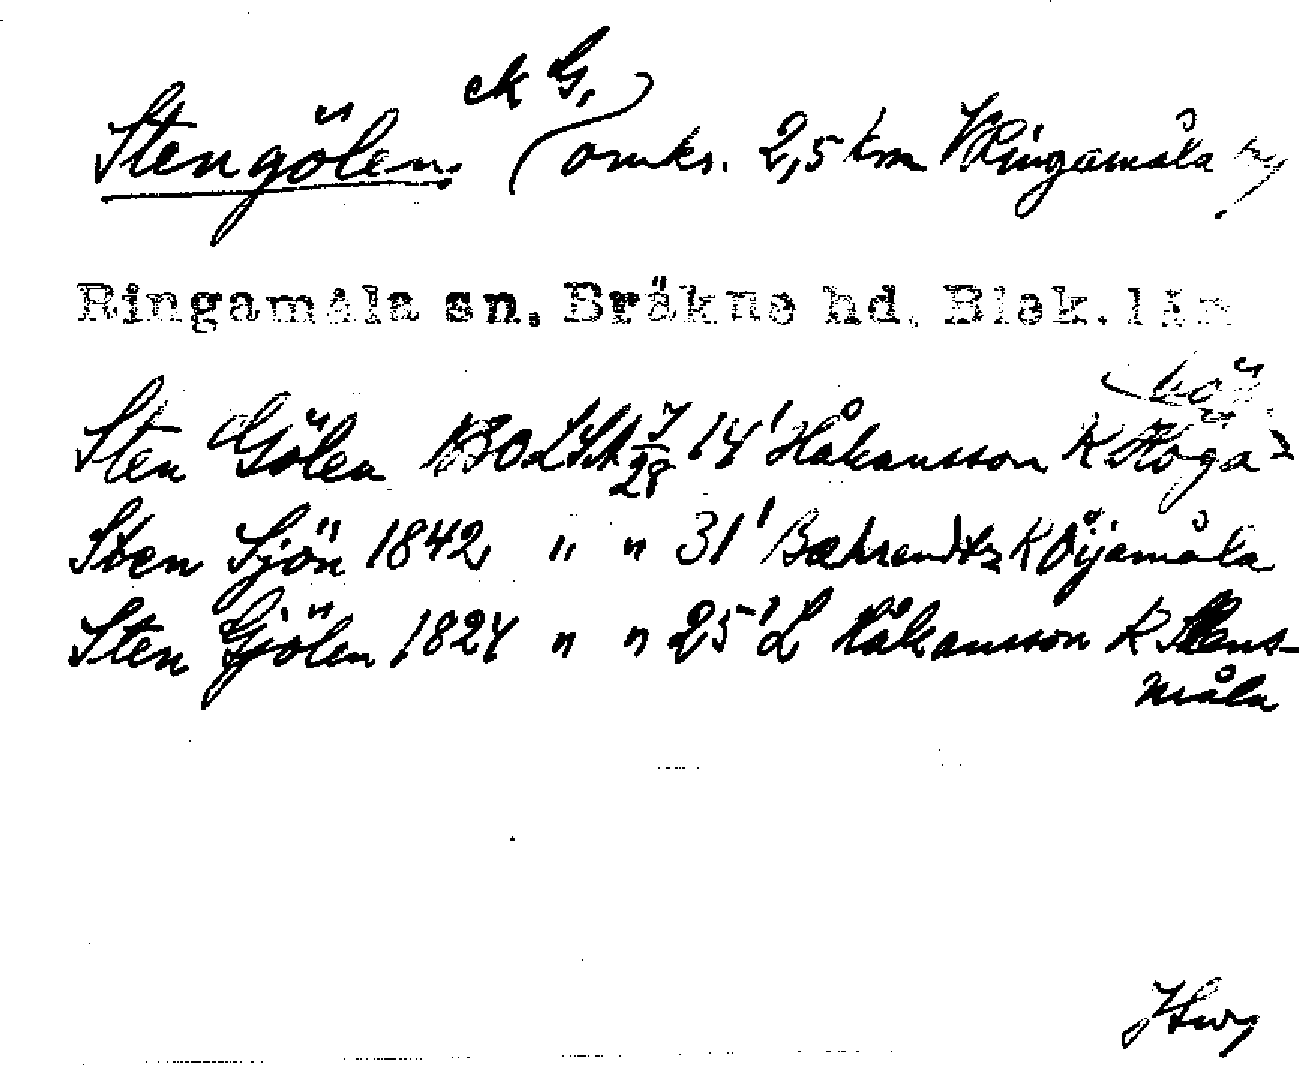 ek G.
Stengölen (omkr. 2,5 km V Ringamåla
Ringamåla sn. Bräkne hd. Blek. län
Sten Gölen LSA 14' Håkansson K Höga
Sten Sjön 1842 " " 31' Bæhrendtz K Öijamåla
Sten Gjölen 1824 " " 25' L Håkansson K Stens-
måla